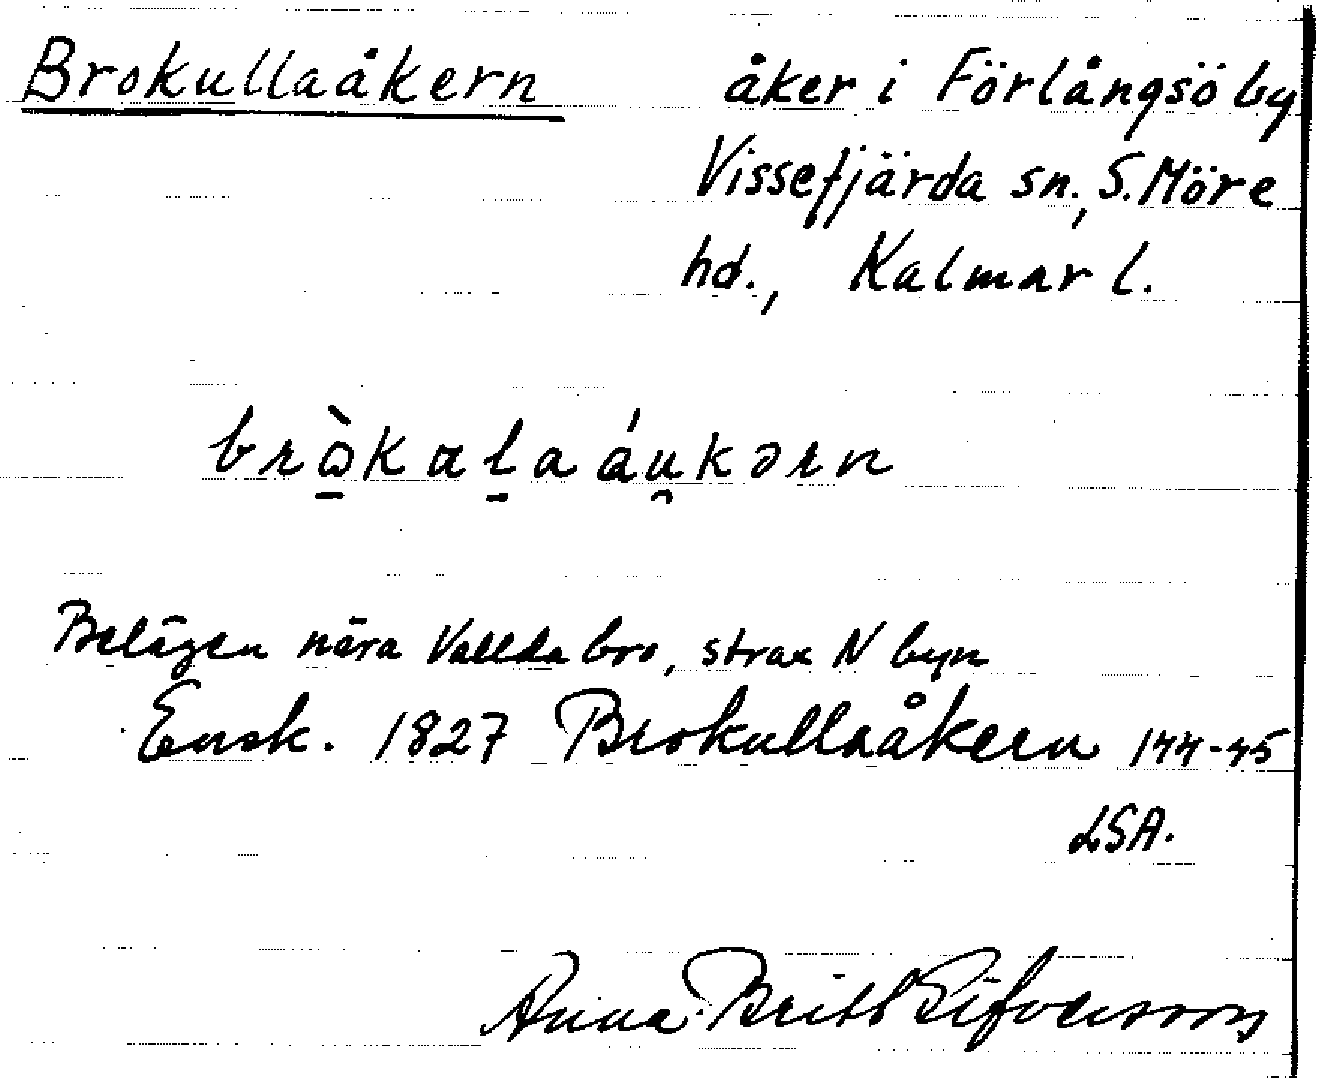 Brokullaåkern åker i Förlångsö by
Vissefjärda sn., S. Möre
hd., Kalmar l.
brɷ̠̀kɑl̠aáu̯kərn
Belägen nära Vallda bro, strax N byn
Ensk. 1827 Brokullaåkern 144-45
LSA.
Anna-Britt Sifversson